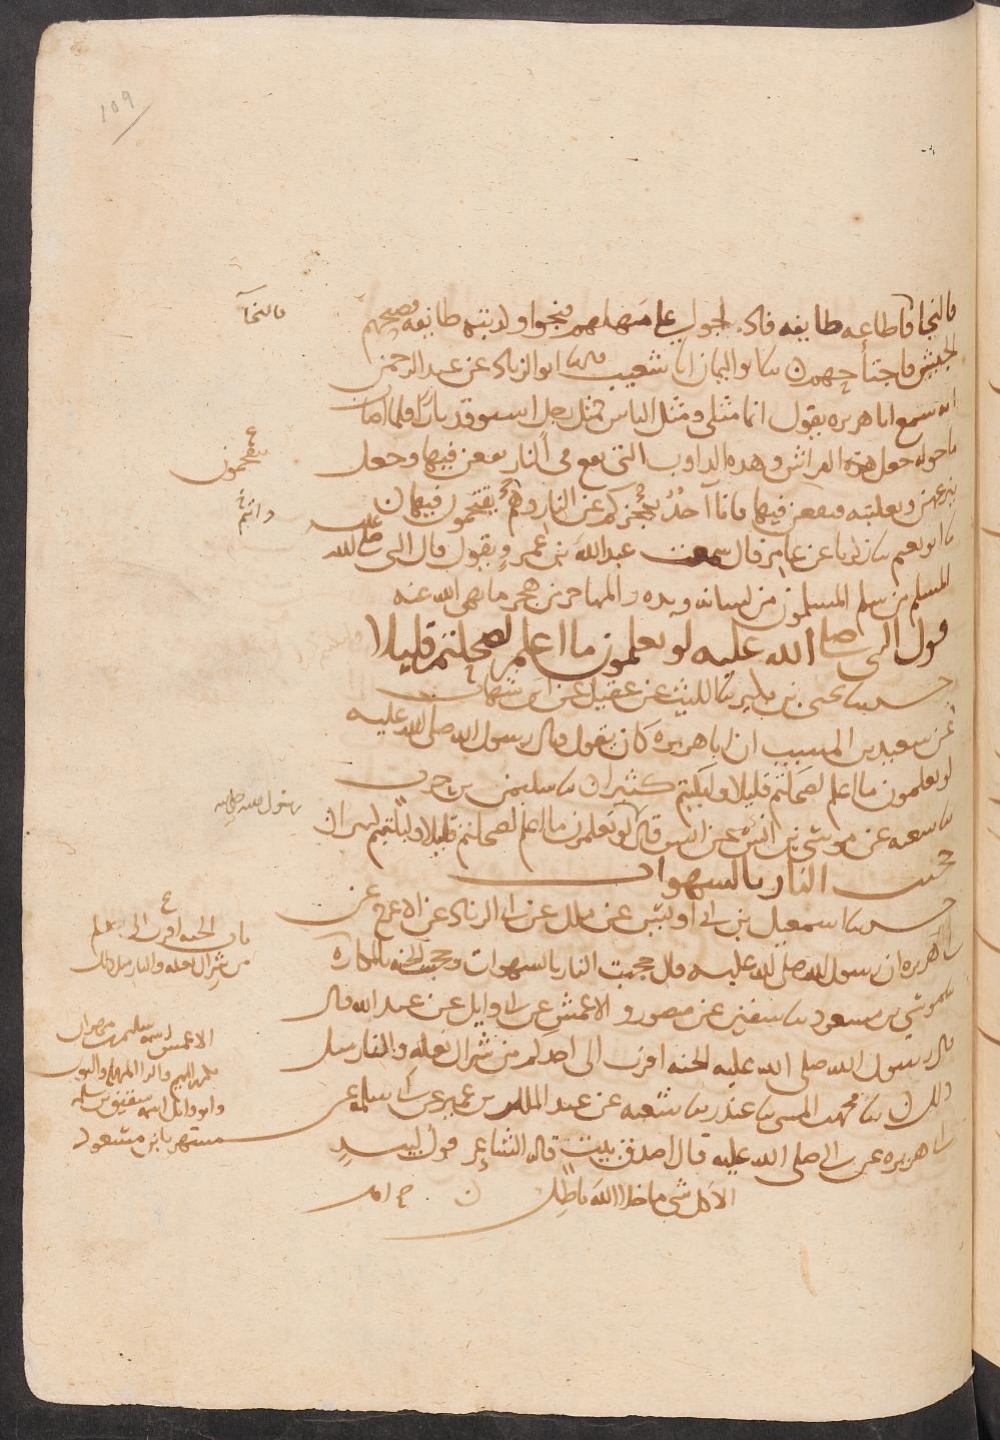 109
فالنجا فاطاعه طايفه فادلجوا علي مهلهم فنجوا وكذبته طايفه فصبحهم
الجيش فاجتاحهم ن نا ابو اليمان انا شعيب نا ابو الزناد عن عبد الرحمن
انه سمع ابا هريره يقول انما مثلي ومثل الناس كمثل رجل استوقد نارا فلما اضات
ما حوله جعل هذه الفراش وهذه الدواب التي تقع في النار يقعن فيها وجعل
ينزعهن ويغلبنه فيقعن فيها فانا آخذ بحجزكم عن النار وهم يقتحمون فيها ن
نا ابو نعيم نا زكريا عن عامر قال سمعت عبد الله بن عمرو يقول قال النبي صلى الله عليه
المسلم من سلم المسلمون من لسانه ويده والمهاجر من هجر ما نهى الله عنه
قول النبي صلى الله عليه لو تعلمون ما اعلم لضحكتم قليلا
نا يحيى بن بكير نا الليث عن عقيل عن ابن شهاب
عن سعيد بن المسيب ان ابا هريره كان يقول قال رسول الله صلى الله عليه
لو تعلمون ما اعلم لضحكتم قليلا ولبكيتم كثيرا ن نا سليمن بن حرب
نا شعبه عن موسى بن انس عن انس قال لو تعلمون ما اعلم لضحكتم قليلا ولبكيتم كثيرا ن
حجبت النار بالشهوات
نا اسمعيل بن ابي اويس عن ملك عن ابي الزناد عن الاعرج عن
ابي هريره ان رسول الله صلى الله عليه قال حجبت النار بالشهوات وحجبت الجنه بالمكاره
نا موسى بن مسعود نا سفين عن منصور والاعمش عن ابي وايل عن عبد الله قال
قال رسول الله صلى الله عليه الجنه اقرب الى احدكم من شراك نعله والنار مثل
ذلك ن نا محمد بن المثنى نا غندر نا شعبه عن عبد الملك بن عمير عن ابي سلمه عن
ابي هريره عن النبي صلى الله عليه قال اصدق بيت قاله الشاعر قول لبيد
الا كل شي ما خلا الله باطل ن
فالنجآ
يقتحمون
وانتم
رسول الله صلى الله
باب الجنه اقرب الى احدكم
من شراك نعله والنار مثل ذلك
الاعمش اسمه سليمن بن مهران
وابو وايل اسمه شقيق بن سلمه
مشتهر بابن مسعود